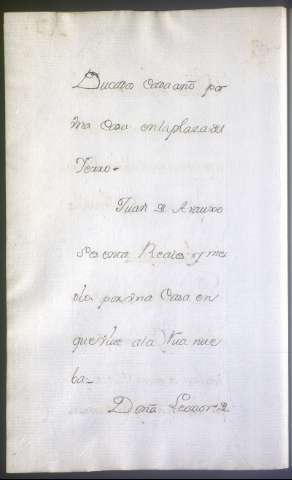 Ducados Cada año por
vna Casa en la plaza del
Terro-
Juan de Arauxo
Sesenta Reales y me
dio por vna Casa en
que viue a la Rua nue
ba-
Doña Leonor de